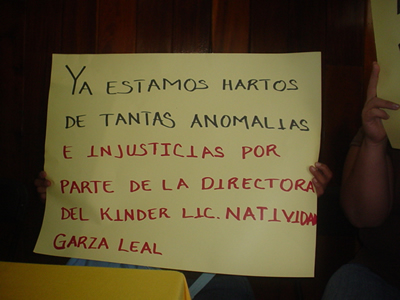 YA ESTAMOS HARTOS
DE TANTAS ANOMALIAS
E INJUSTICIAS POR
PARTE DE LA DIRECTORA
DEL KINDER LIC. NATIVIDAD
GARZA LEAL